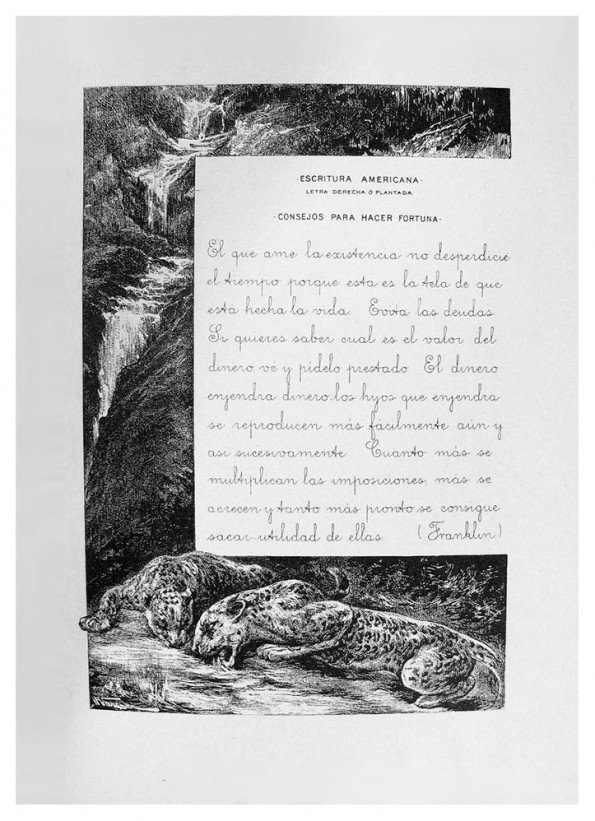 ·ESCRITURA AMERICANA·
LETRA DERECHA Ó PLANTADA
·CONSEJOS PARA HACER FORTUNA·
El que ame la existencia no desperdicie
el tiempo porque esta es la tela de que
está hecha la vida. Evita las deudas.
Si quieres saber cual es el valor del
dinero ve y pidelo prestado. El dinero
engendra dinero, los hijos que engendra
se reproducen más fácilmente aún y
asi sucesivamente. Cuanto más se
multiplican las imposiciones, mas se
acrecen y tanto más pronto se consigue
sacar utilidad de ellas. (Franklin)